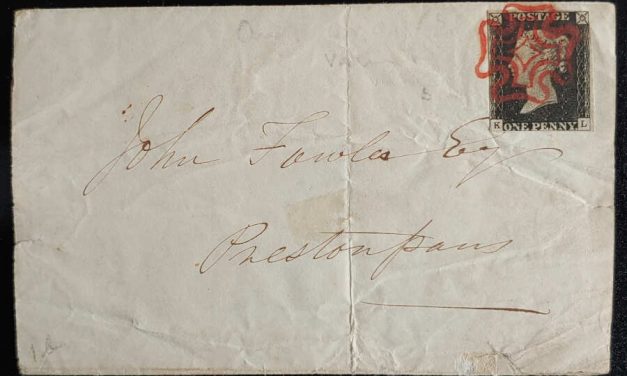 POSTAGE
K ONE PENNY L
John Fowler Esq
Prestonpans